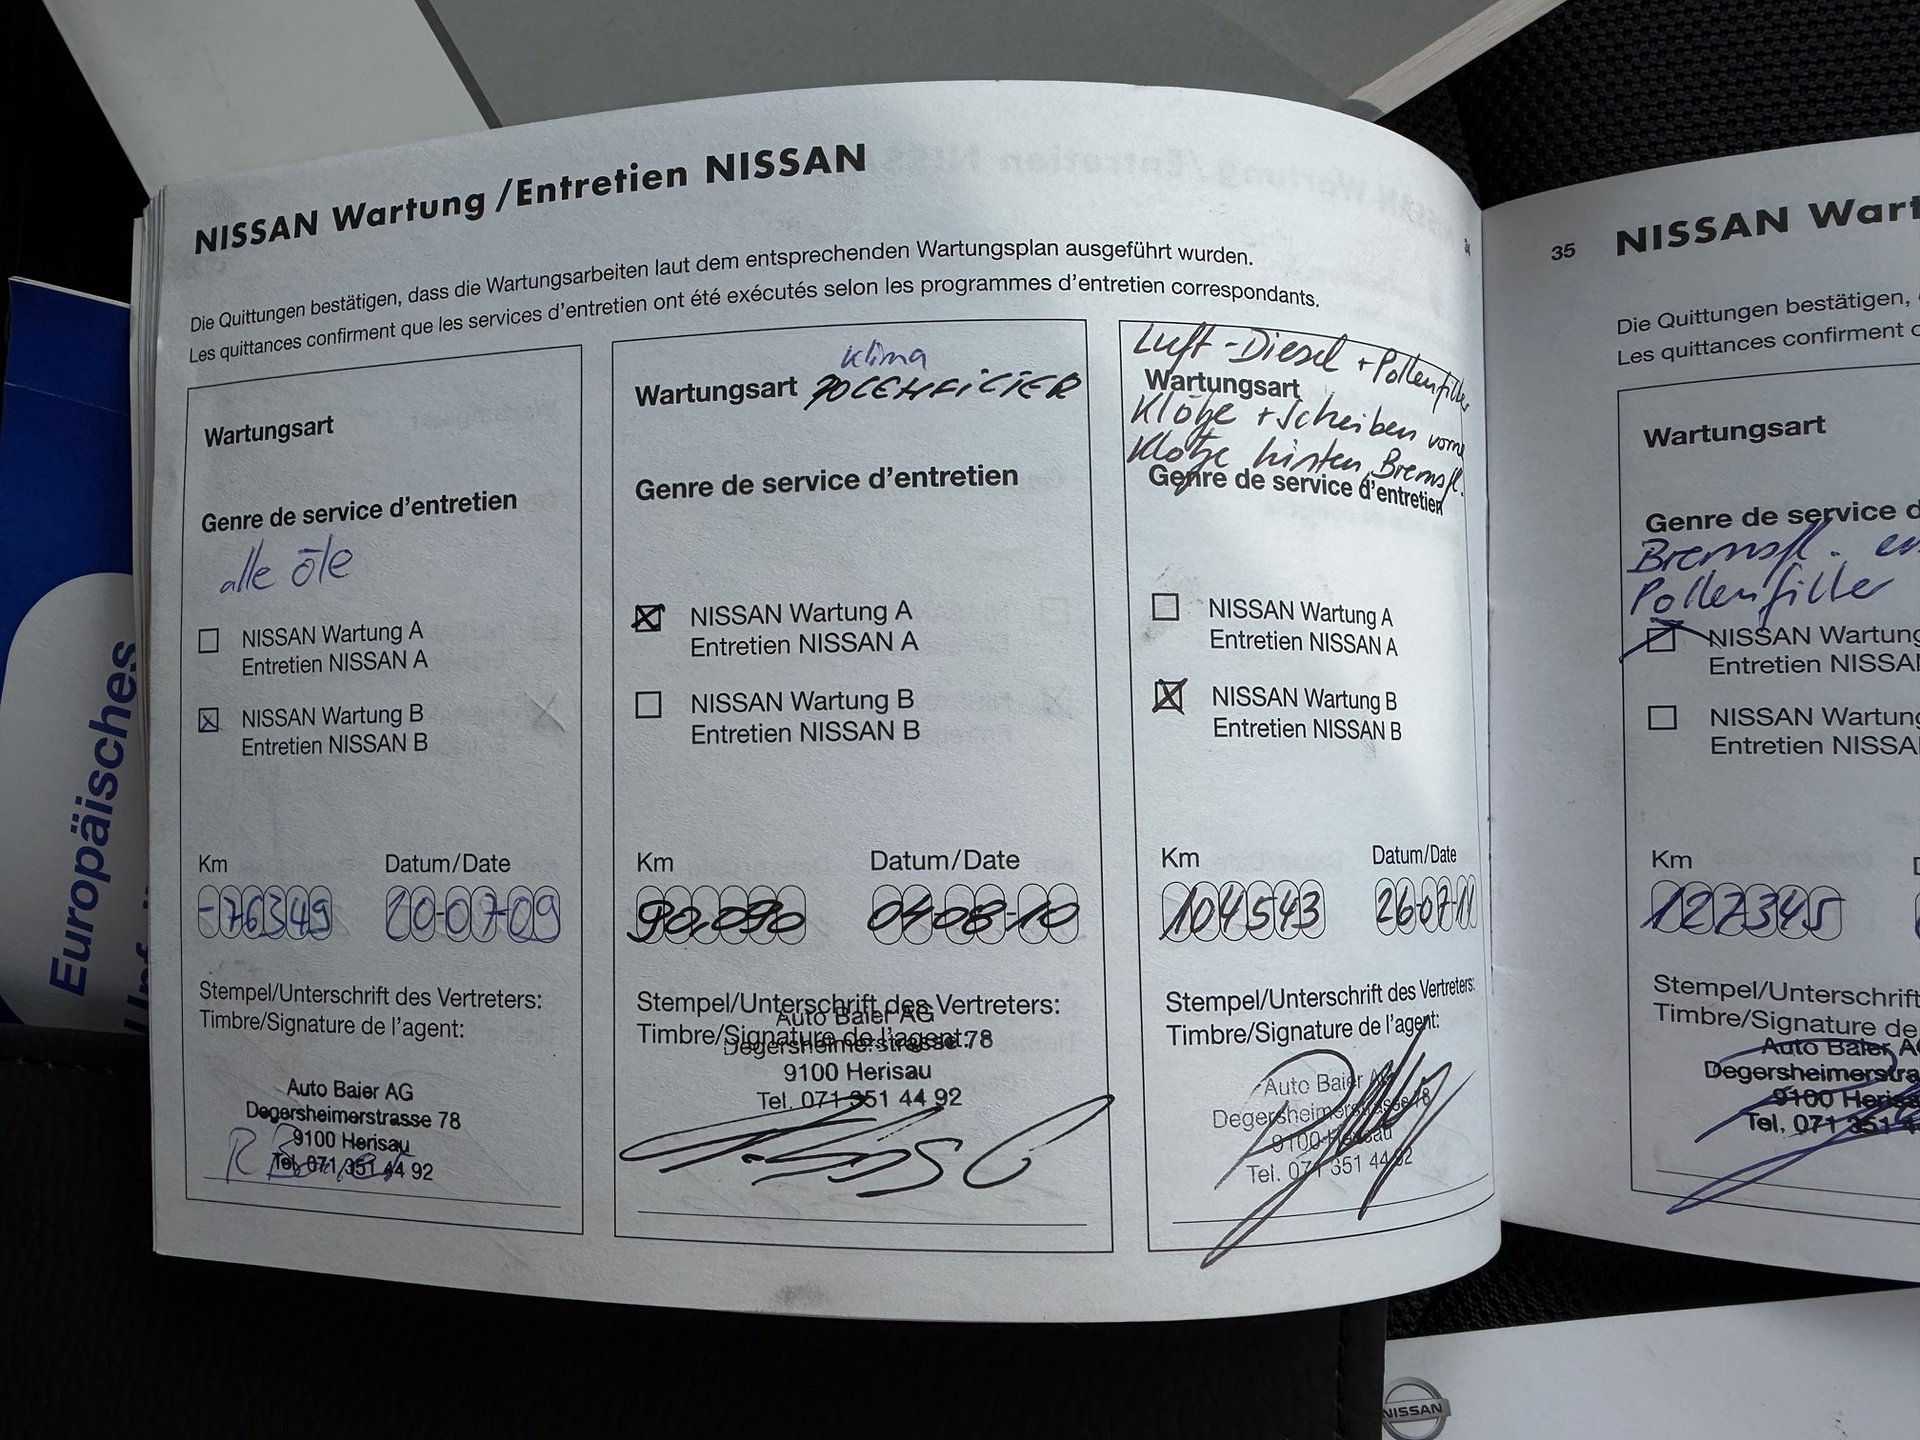 NISSAN Wartung /Entretien NISSAN
Die Quittungen bestätigen, dass die Wartungsarbeiten laut dem entsprechenden Wartungsplan ausgeführt wurden.
Les quittances confirment que les services d'entretien ont été exécutés selon les programmes d'entretien correspondants.
Wartungsart
Genre de service d'entretien
alle öle
NISSAN Wartung A
Entretien NISSAN A
NISSAN Wartung B
Entretien NISSAN B
Km
Datum/Date
-76349
20-07-09
Stempel/Unterschrift des Vertreters:
Timbre/Signature de l'agent:
Auto Baier AG
Degersheimerstrasse 78
9100 Herisau
Tel. 071 351 44 92
Klima
Wartungsart POLENFILTER
Genre de service d'entretien
NISSAN Wartung A
Entretien NISSAN A
NISSAN Wartung B
Entretien NISSAN B
Km
Datum/Date
90.090
04-08-10
Stempel/Unterschrift des Vertreters:
Timbre/Signature de l'agent:
Auto Baier AG
Degersheimerstrasse 78
9100 Herisau
Tel. 071 351 44 92
Luft-Diesel + Pollenfilter
Wartungsart
Klötze + Scheiben vorne
Klötze hinten, Bremsfl.
Genre de service d'entretien
NISSAN Wartung A
Entretien NISSAN A
NISSAN Wartung B
Entretien NISSAN B
Km
Datum/Date
104543
26-07-11
Stempel/Unterschrift des Vertreters:
Timbre/Signature de l'agent:
Auto Baier AG
Degersheimerstrasse 78
9100 Herisau
Tel. 071 351 44 92
35
NISSAN Wart
Die Quittungen bestätigen,
Les quittances confirment
Wartungsart
Genre de service d
Bremsfl.
Pollenfilter
NISSAN Wartung
Entretien NISSA
NISSAN Wartung
Entretien NISSA
Km
127345
Stempel/Unterschrift
Timbre/Signature de
Auto Baier A
Degersheimerstra
9100 Heris
Tel. 071 351 4
Europäisches
NISSAN